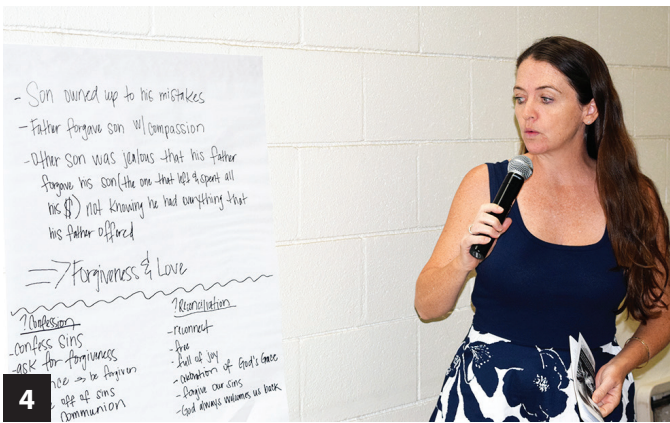 - Son owned up to his mistakes
- Father forgave son w/ compassion
- Other son was jealous that his father
forgave his son (the one that left & spent all
his $) not knowing he had everything that
his father offered
=> Forgiveness & Love
? Confession
- confess sins
- ask for forgiveness
→ be forgiven
off of sins
communion
? Reconciliation
- reconnect
- free
- full of joy
- celebration of God's Grace
- forgive our sins
- God always welcomes us back
4